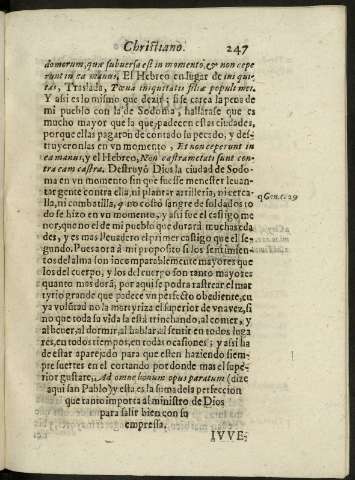 Christiano. 247
domorum, quæ subuersa est in momento, & non cepe
runt in ea manus, El Hebreo en lugar de ini qui
tas, Traslada, Pœna iniquitatis filiæ populi mei.
Y assi es lo mismo que dezir; si se carea la pena de
mi pueblo con la de Sodoma, hallarase que es
mucho mayor que la que padecen estas ciudades,
porque ellas pagaron de contado su pecado, y des-
truyeronlas en vn momento, Et non ceperunt in
ea manus, y el Hebreo, Non castrametati sunt con-
tra eam castra. Destruyò Dios la ciudad de Sodo
ma en vn momento sin que fuesse menester leuan-
tar gente contra ella, ni plantar artilleria, ni cerca-
lla, ni combatilla, q no costò sangre de soldados to
do se hizo en vn momento, y assi fue el castigo me
nor, que no el de mi pueblo que durarà muchas eda
des, y es mas lleuadero el primer castigo que el se-
gundo. Pues aora à mi proposito si los sentimien-
tos del alma son incomparablemente mayores que
los del cuerpo, y los del cuerpo son tanto mayores
quanto mas dorà, por aqui se podra rastrear el mar
tyrio grande que padece vn perfecto obediente, en
ya volũtad no la martyriza el superior de vna vez, si
no que toda su vida la està trinchando, al comer, y
al beuer, al dormir, al hablar, al sentir en todos luga
res, en todos tiempos, en todas ocasiones; y assi ha
de estar aparejado para que esten haziendo siem-
pre suertes en el cortando por donde mas el supe-
rior gustare, Ad omne bonum opus paratum (dize
aqui san Pablo) y esta es la suma de la perfeccion
que tanto importa al ministro de Dios
para salir bien con su
empressa.
IVVE-
q Gen. c. 29